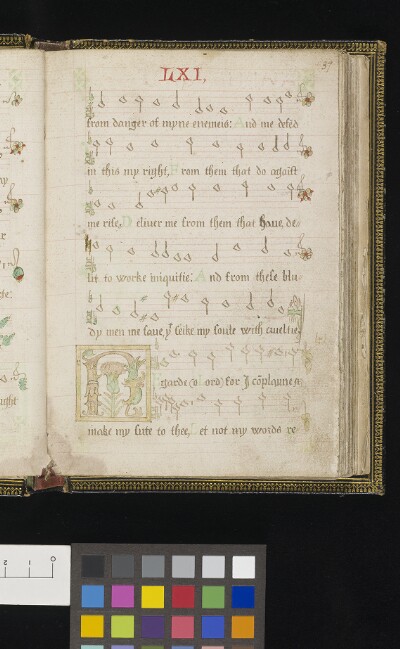 LXI,
37
from danger of myne enemeis: And me defēd
in this my right, From them that do agaīst
me rise, Deliuer me from them that haue, de-
lit to worke iniquitie: And from these blu-
dy men me saue, yͭ seike my soule with crueltie.
Regarde (o lord) for I cōplayne &
make my sute to thee, Let not my words re-
0
1
2